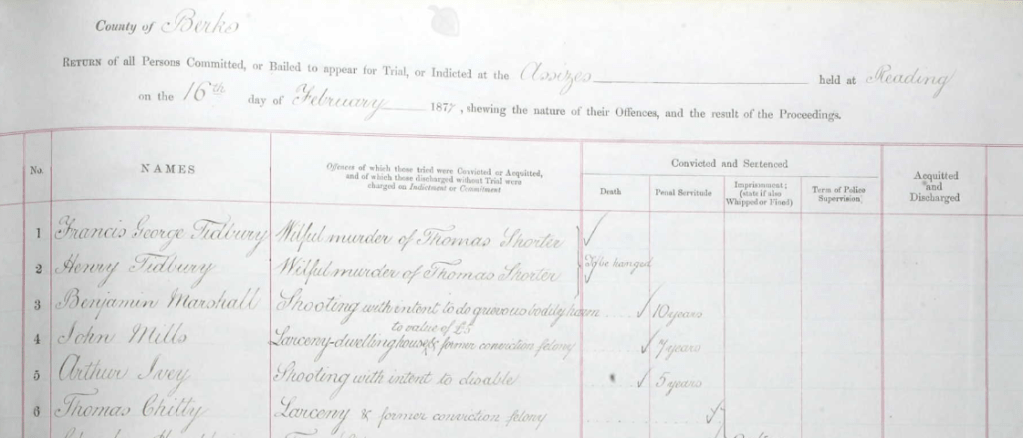 County of Berks
RETURN of all Persons Committed, or Bailed to appear for Trial, or Indicted at the Assizes held at Reading
on the 16th day of February 1877, shewing the nature of their Offences, and the result of the Proceedings.
No. NAMES Offences of which those tried were Convicted or Acquitted, and of which those discharged without Trial were charged on Indictment or Commitment Convicted and Sentenced Acquitted and Discharged
Death Penal Servitude Imprisonment; (state if also Whipped or Fined) Term of Police Supervision
1 Francis George Tidbury Wilful murder of Thomas Shorter
To be hanged
2 Henry Tidbury Wilful murder of Thomas Shorter
3 Benjamin Marshall Shooting with intent to do grievous bodily harm 10 years
to value of £5
4 John Mills Larceny-dwelling house & former conviction felony 7 years
5 Arthur Ivey Shooting with intent to disable 5 years
6 Thomas Chitty Larceny & former conviction felony